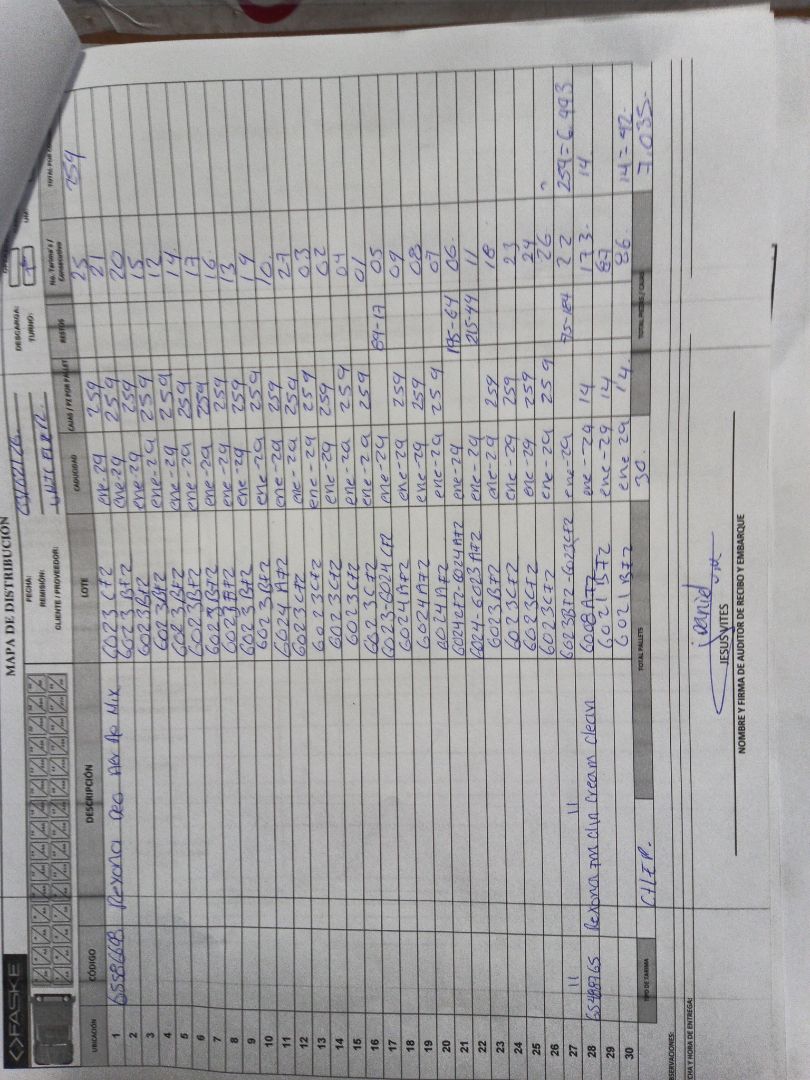 <>FASKE
MAPA DE DISTRIBUCIÓN
FECHA:
DESCARGA:
REMISIÓN:
TURNO:
CLIENTE / PROVEEDOR:
UBICACIÓN CÓDIGO DESCRIPCIÓN LOTE CADUCIDAD CAJAS / PZ POR PALLET RESTOS No. Tarima's / Consecutivo
1 65586698 Rexona Deo Aer Ap Mix 6023 C72 ene-29 259 25 259
2 6023 B72 ene-29 259 21
3 6023 B72 ene-29 259 20
4 6023 B72 ene-29 259 15
5 6023 B72 ene-29 259 12
6 6023 B72 ene-29 259 14
7 6023 B72 ene-29 259 17
8 6023 A72 ene-29 259 16
9 6023 B72 ene-29 259 13
10 6023 B72 ene-29 259 19
11 6024 A72 ene-29 259 10
12 6023 C72 ene-29 259 27
13 6023 C72 ene-29 259 03
14 6023 C72 ene-29 259 02
15 6023 C72 ene-29 259 04
16 6023 C72 ene-29 259 01
17 6023-6024 C72 ene-29 05
18 6024 A72 ene-29 259 09
19 6024 A72 ene-29 259 08
20 6024 A72 ene-29 259 07
21 6024 C72-6024 A72 ene-29 195-64 06
22 6024-6023 A72 ene-29 215-44 11
23 6023 B72 ene-29 259 18
24 6023 C72 ene-29 259 23
25 6023 C72 ene-29 259 24
26 6023 C72 ene-29 259 26
27 11 11 6023 B72-6023 C72 ene-29 75-184 22 259 = 6.993
28 65488765 Rexona Clin Cream Clean 6008 A72 ene-29 14 173 14
29 6021 B72 ene-29 14 87
30 6021 B72 ene 29 14 86 14 = 42
TIPO DE TARIMA CHEP. TOTAL PALLETS 30 TOTAL PIEZAS / CAJAS 7.035
JESUS VITES
NOMBRE Y FIRMA DE AUDITOR DE RECIBO Y EMBARQUE